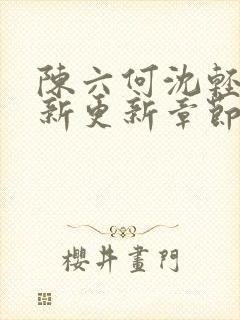 陳六何沈輕
新更新章節
櫻井畫門